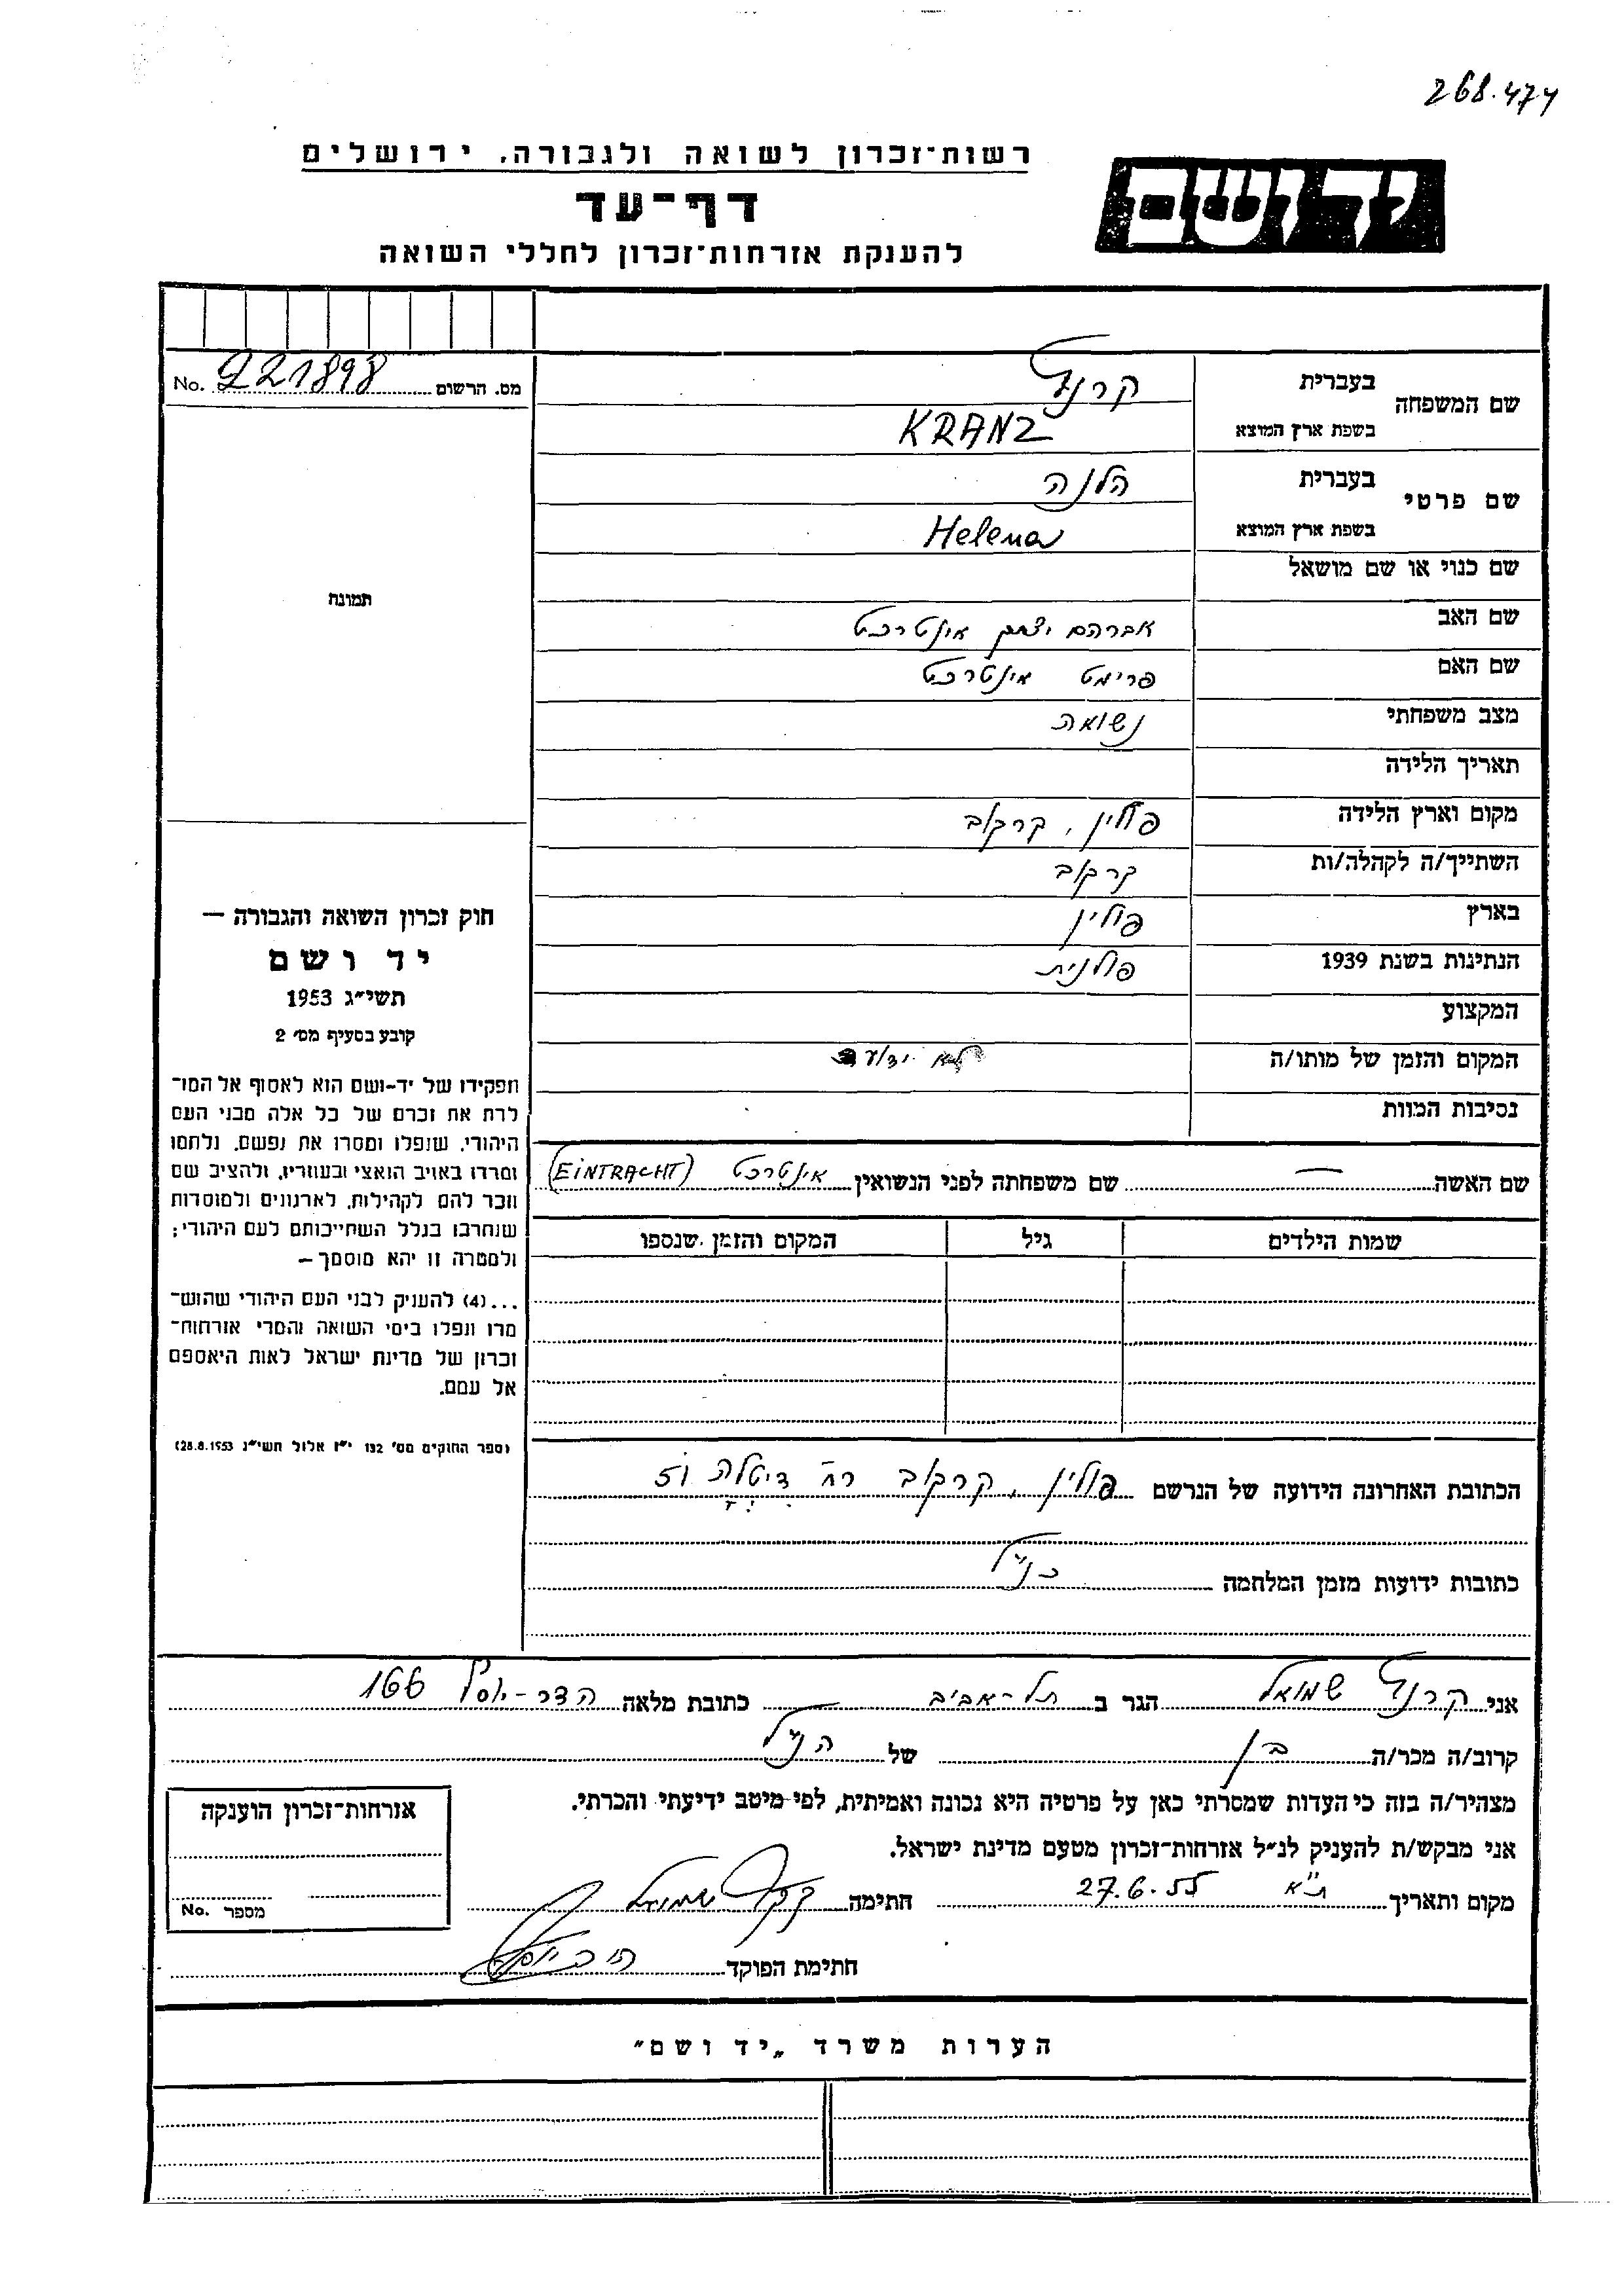 268.474
רשות־זכרון לשואה ולגבורה, ירושלים
יד ושם
דף־עד
להענקת אזרחות־זכרון לחללי השואה
מס. הרשום 221898 No.
שם המשפחה בעברית קרנץ
בשפת ארץ המוצא KRANZ
שם פרטי בעברית הלנה
בשפת ארץ המוצא Helena
שם כנוי או שם מושאל
שם האב אברהם יצחק אינטרכט
שם האם פרימט אינטרכט
מצב משפחתי נשואה
תאריך הלידה
מקום וארץ הלידה פולין, קרקוב
השתייך/ה לקהלה/ות קרקוב
בארץ פולין
הנתינות בשנת 1939 פולנית
המקצוע
המקום והזמן של מותו/ה לא ידוע
נסיבות המוות
שם האשה — שם משפחתה לפני הנשואין אינטרכט (EINTRACHT)
שמות הילדים גיל המקום והזמן שנספו
הכתובת האחרונה הידועה של הנרשם פולין, קרקוב רח' דיטלה 51
כתובות ידועות מזמן המלחמה כנ"ל
תמונה
חוק זכרון השואה והגבורה —
יד ושם
תשי״ג 1953
קובע בסעיף מס׳ 2
תפקידו של יד-ושם הוא לאסוף אל המו־
לדת את זכרם של כל אלה מבני העם
היהודי, שנפלו ומסרו את נפשם, נלחמו
ומרדו באויב הנאצי ובעוזריו, ולהציב שם
וזכר להם לקהילות, לארגונים ולמוסדות
שנחרבו בגלל השתייכותם לעם היהודי;
ולמטרה זו יהא מוסמך —
...(4) להעניק לבני העם היהודי שהוש־
מדו ונפלו בימי השואה והמרי אזרחות־
זכרון של מדינת ישראל לאות היאספם
אל עמם.
(ספר החוקים מס׳ 132 י״ז אלול תשי״ג 28.8.1953)
אני קרנץ שמואל הגר ב תל-אביב כתובת מלאה הדר-יוסף 166
קרוב/ה מכר/ה בן של הנ"ל
מצהיר/ה בזה כי העדות שמסרתי כאן על פרטיה היא נכונה ואמיתית, לפי מיטב ידיעתי והכרתי.
אני מבקש/ת להעניק לנ״ל אזרחות־זכרון מטעם מדינת ישראל.
מקום ותאריך ת"א 27.6.55 חתימה קרנץ שמואל
חתימת הפוקד
אזרחות־זכרון הוענקה
מספר No.
הערות משרד „יד ושם״